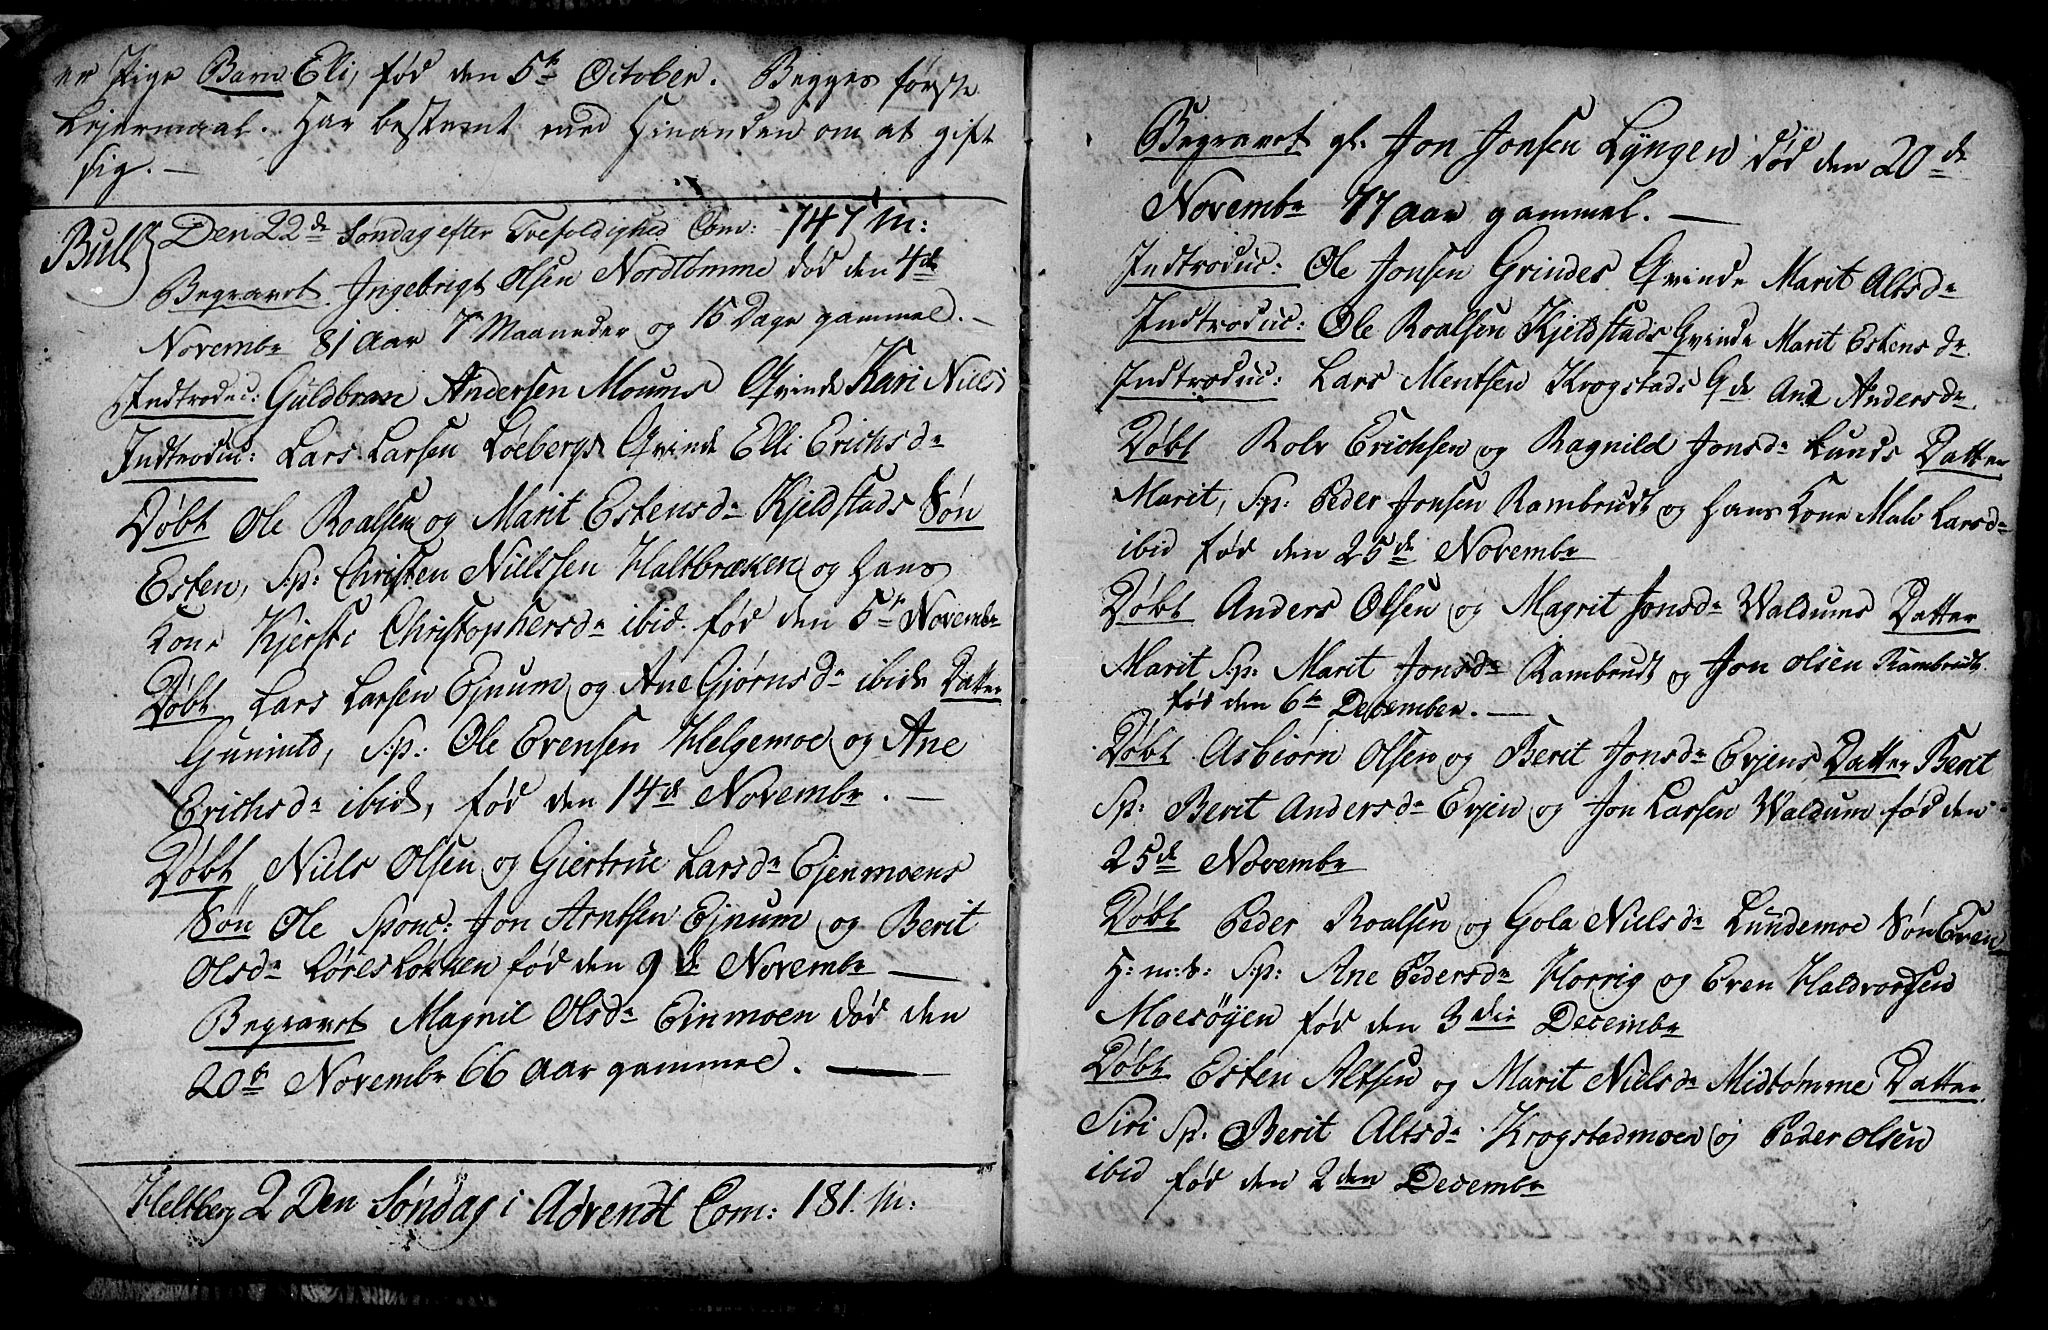 er Pige Barn Eli, fød den 5te October. Begges første
Lejermaal. Har bestemt med Hinanden om at gift
sig. —
Bull} Den 22de Søndag efter Trefoldighed Com: 147 M:
Begravet Ingebrigt Olsen Nordtømme død den 4de
Novembr 81 Aar 7 Maaneder og 15 Dage gammel. —
Indtroduc: Guldbran Andersen Moums Qvinde Kari Niels
Indtroduc: Lars Larsen Løebergs Qvinde Elli Erichsdr
Døbt Ole Roalsen og Marit Estensdr Kjeldstads Søn
Esten, Sp: Christen Nielsen Haltbræken og Hans
Kone Kjersti Christophersdr ibid. fød den 5te Novembr
Døbt Lars Larsen Ejnum og Ane Gjørnsdr ibid Datter
Gunild, Sp: Ole Evensen Helgemoe og Ane
Erichsdr ibid, fød den 14de Novembr. —
Døbt Niels Olsen og Giertrue Larsdr Ejenmoens
Søn Ole Sponc: Jon Arntsen Ejnum og Berit
Olsdr Løresløkken fød den 9de Novembr —
Begravet Magnil Olsdr Einmoen død den
20te Novembr 66 Aar gammel. —
Heltberg 2 Den Søndag i Advendt Com: 181. M:
Begravet gl: Jon Jonsen Lyngen død den 20de
Novembr 77 Aar gammel. —
Indtroduc: Ole Jonsen Grindes Qvinde Marit Altsdr
Indtroduc: Ole Roalsen Kjeldstads Qvinde Marit Estensdr
Indtroduc: Lars Mentsen Krogstads Qde Ane Andersdr
Døbt Rolv Erichsen og Ragnild Jonsdr Lunds Datter
Marit, Sp: Peder Jonsen Rambrudt og Hans Kone Male Larsdr
ibid fød den 25de Novembr
Døbt Anders Olsen og Magrit Jonsdr Waldums Datter
Marit Sp: Marit Jonsdr Rambrudt og Jon Olsen Rambrudt
fød den 6te December. —
Døbt Asbiørn Olsen og Berit Jonsdr Evjens Datter Berit
Sp: Berit Andersdr Evjen og Jon Larsen Waldum fød den
25de Novembr
Døbt Peder Roalsen og Gola Nielsdr Lundemoe Søn Even
H: m: d: Sp: Ane Pedersdr Horrig og Even Haldvorsen
Moesøyen fød den 3die Decembr
Døbt Esten Altsen og Marit Nielsdr Midtømme Datter
Siri Sp. Berit Altsdr Krogstadmoen og Peder Olsen
ibid fød den 2den Decembr